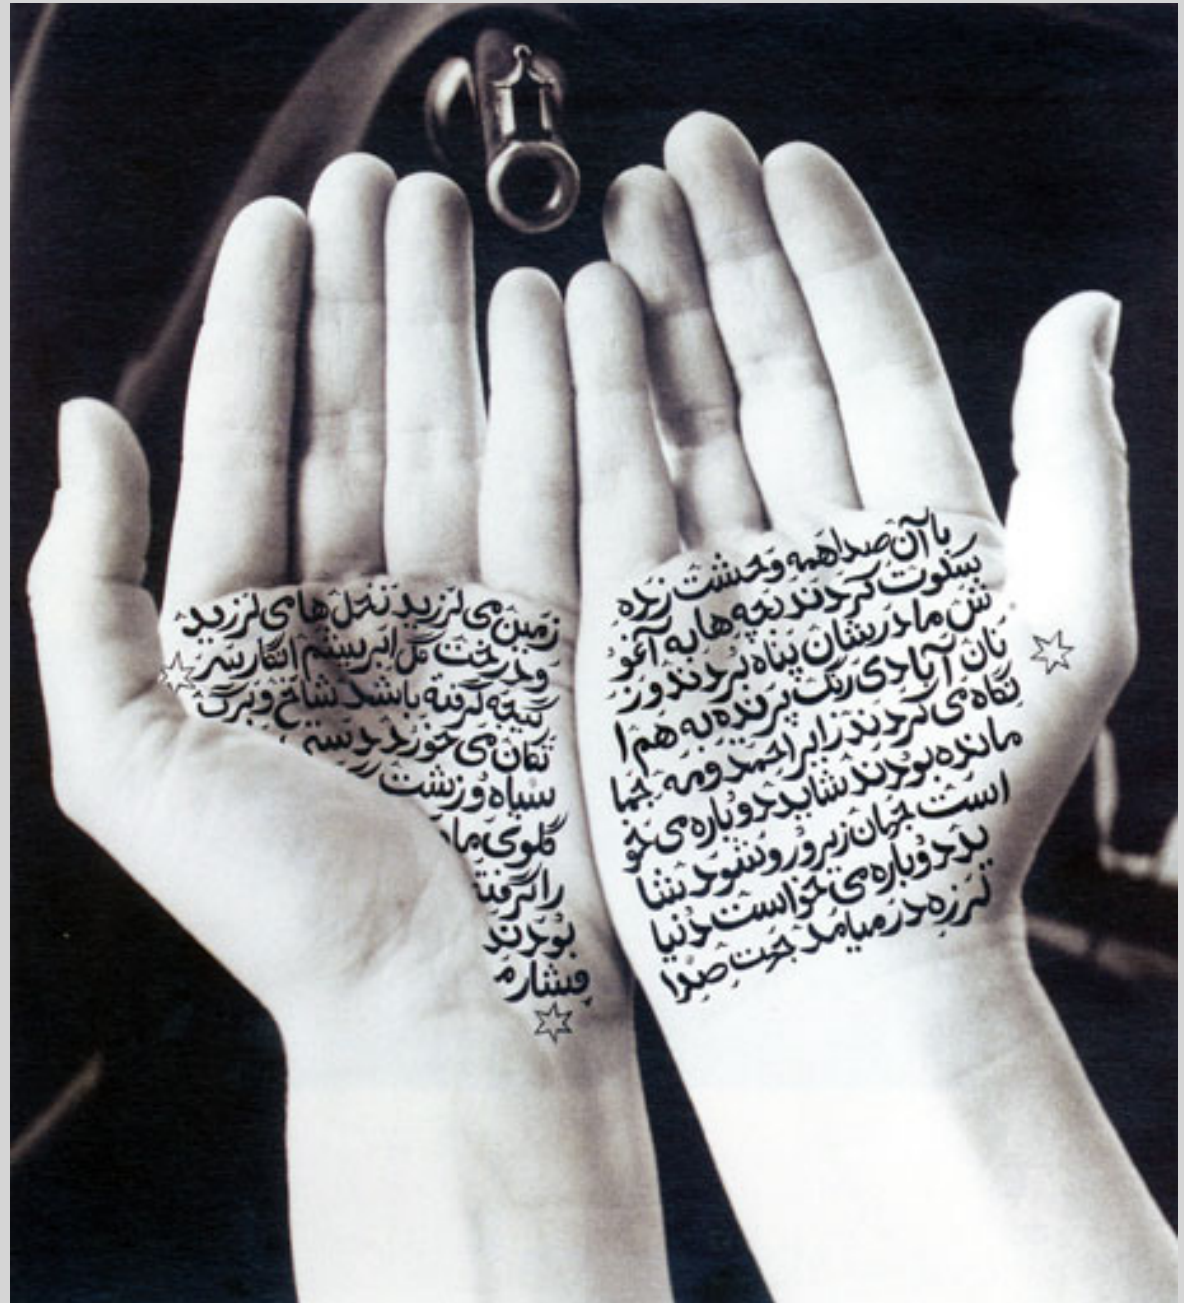 با آن صدا همه وحشت زده
سکوت کردند بچه ها به آغو
ش مادریشان پناه بردند وز
نان آبادی رنگ پرنده به هم ا
نگاه می کردند زابر احمد ومه جما
مانده بودند شاید دوباره می خو
است جهان زیر ورو شود شا
ید دوباره می خواست دنیا
لرزه در میامد جت صدا
زمین می لرزید نخل های لرزید
ودرخت گل ابریشم انگار سر
گیجه گرفته باشد شاخ وبرگ
تکان می خورد دسته
سیاه وزشت
گلوی ما
را گرفته
بودند
فشار م